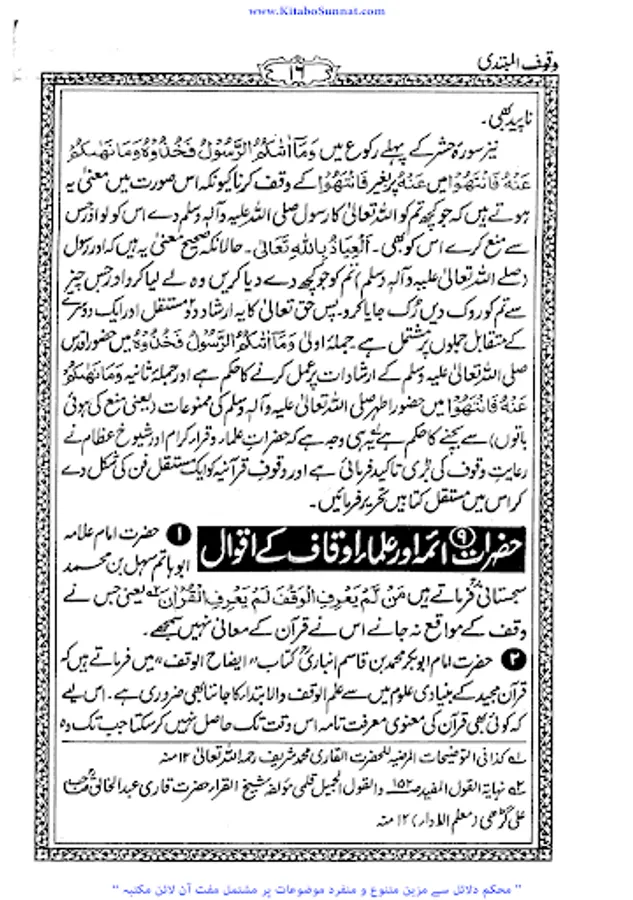 www.KitaboSunnat.com
وقوف المبتدی
۱۶
ناپید بھی۔
نیز سورۂ حشر کے پہلے رکوع میں وَمَآ اٰتٰىكُمُ الرَّسُوْلُ فَخُذُوْهُ وَمَا نَهٰىكُمْ
عَنْهُ فَانْتَهُوْا میں عَنْهُ پر بغیر فَانْتَهُوْا کے وقف کرنا کیونکہ اس صورت میں معنیٰ یہ
ہوتے ہیں کہ جو کچھ تم کو اللہ تعالیٰ کا رسول صلی اللہ علیہ وآلہ وسلم دے اس کو لو اور جس
سے منع کرے اس کو بھی۔ اَلْعِيَاذُ بِاللهِ تَعَالٰى۔ حالانکہ صحیح معنیٰ یہ ہیں کہ اور رسول
(صلے اللہ تعالیٰ علیہ وآلہ وسلم) تم کو جو کچھ دے دیا کریں وہ لے لیا کرو اور جس چیز
سے تم کو روک دیں رُک جایا کرو۔ پس حق تعالیٰ کا یہ ارشاد دو مستقل اور ایک دوسرے
کے متقابل جملوں پر مشتمل ہے۔ جملۂ اولیٰ وَمَآ اٰتٰىكُمُ الرَّسُوْلُ فَخُذُوْهُ میں حضور اقدس
صلی اللہ تعالیٰ علیہ وسلم کے ارشادات پر عمل کرنے کا حکم ہے اور جملۂ ثانیہ وَمَا نَهٰىكُمْ
عَنْهُ فَانْتَهُوْا میں حضور اطہر صلی اللہ تعالیٰ علیہ وآلہ وسلم کی ممنوعات (یعنی منع کی ہوئی
باتوں) سے بچنے کا حکم ہے یہی وجہ ہے کہ حضرات علماء و قراء کرام اور شیوخ عظام نے
رعایتِ وقوف کی بڑی تاکید فرمائی ہے اور وقوفِ قرآنیہ کو ایک مستقل فن کی شکل دے
کر اس میں مستقل کتابیں تحریر فرمائیں۔
۹ حضرات ائمہ اور علماء اوقاف کے اقوال
۱ حضرت امام علامہ
ابو حاتم سہل بن محمد
سجستانیؒ فرماتے ہیں مَنْ لَّمْ يَعْرِفِ الْوَقْفَ لَمْ يَعْرِفِ الْقُرْاٰنَ یعنی جس نے
وقف کے مواقع نہ جانے اس نے قرآن کے معانی نہیں سمجھے۔
۲ حضرت امام ابوبکر محمد بن قاسم انباریؒ کتاب "ایضاح الوقف" میں فرماتے ہیں کہ
قرآن مجید کے بنیادی علوم میں سے علم الوقف والابتداء کا جاننا بھی ضروری ہے۔ اس لیے
کہ کوئی بھی قرآن کی معنوی معرفت تامہ اس وقت تک حاصل نہیں کر سکتا جب تک وہ
لہ کذا فی التوضیحات المرضیہ للحضرت القاری محمد شریف رحمہ اللہ تعالیٰ ۱۲ منہ
۲ہ نہایۃ القول المفید صـ۱۵۲ والقول الجمیل قلمی مؤلفہ شیخ القراء حضرت قاری عبدالخالق صاحب
علی گڑھی (معلم الاداء) ۱۲ منہ
" محکم دلائل سے مزین متنوع و منفرد موضوعات پر مشتمل مفت آن لائن مکتبہ "